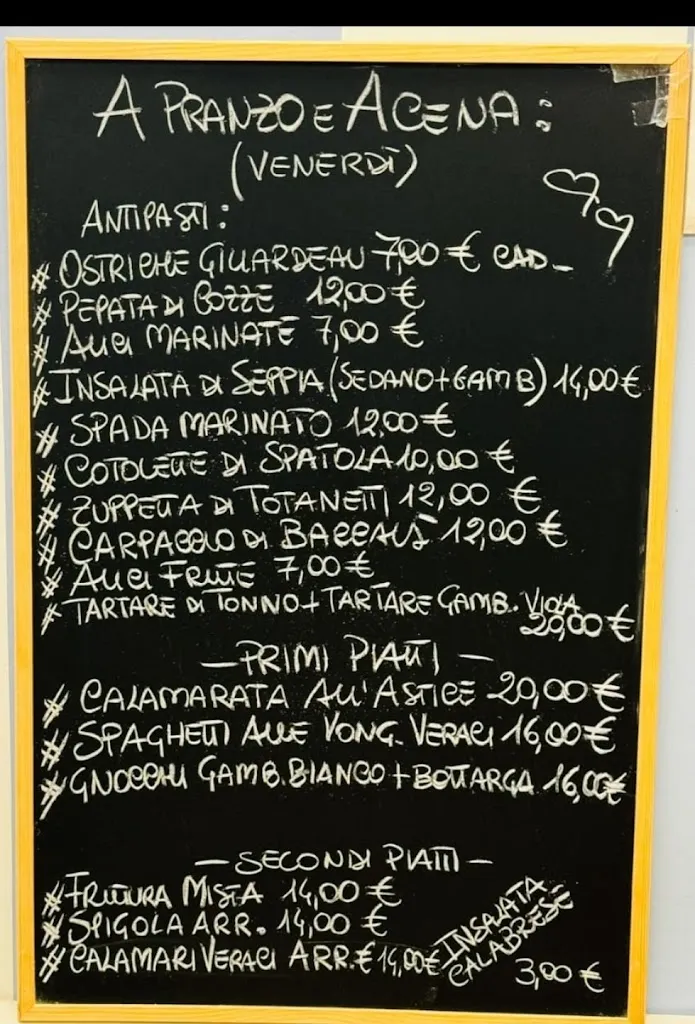 A PRANZO E A CENA:
(VENERDÌ)
ANTIPASTI:
# OSTRICHE GILLARDEAU 7,00 € CAD_
# PEPATA DI COZZE 12,00 €
# ALICI MARINATE 7,00 €
# INSALATA DI SEPPIA (SEDANO+GAMB) 14,00 €
# SPADA MARINATO 12,00 €
# COTOLETTE DI SPATOLA 10,00 €
# ZUPPETTA DI TOTANETTI 12,00 €
# CARPACCIO DI BACCALÀ 12,00 €
# ALICI FRITTE 7,00 €
# TARTARE DI TONNO + TARTARE GAMB. VIOLA
20,00 €
— PRIMI PIATTI —
# CALAMARATA ALL'ASTICE 20,00 €
# SPAGHETTI ALLE VONG. VERACI 16,00 €
# GNOCCHI GAMB. BIANCO + BOTTARGA 16,00 €
— SECONDI PIATTI —
# FRITTURA MISTA 14,00 €
# SPIGOLA ARR. 14,00 €
# CALAMARI VERACI ARR. € 14,00 €
INSALATA
CALABRESE
3,00 €